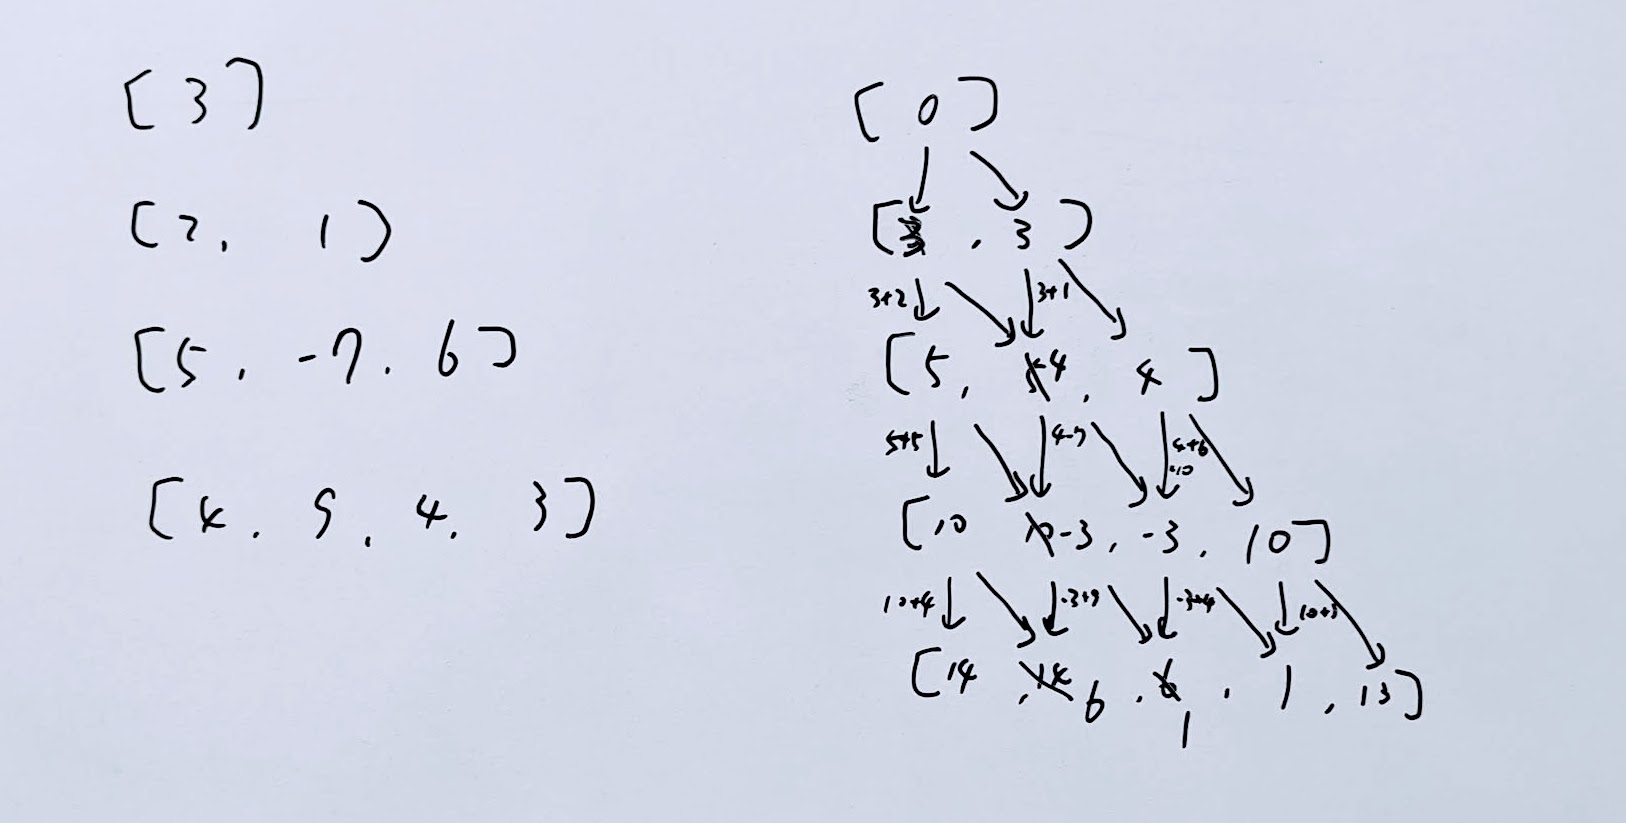 [ 3 ]
[ 2, 1 ]
[ 5, -7, 6 ]
[ 4, 9, 4, 3 ]
[ 0 ]
[ , 3 ]
3+2 3+1
[ 5, 4, 4 ]
5+5 4-7 4+6
[ 10 -3, -3, 10 ]
10+4 -3+9 -3+4 10+3
[ 14, 14 6, 6, 1, 13 ]
1